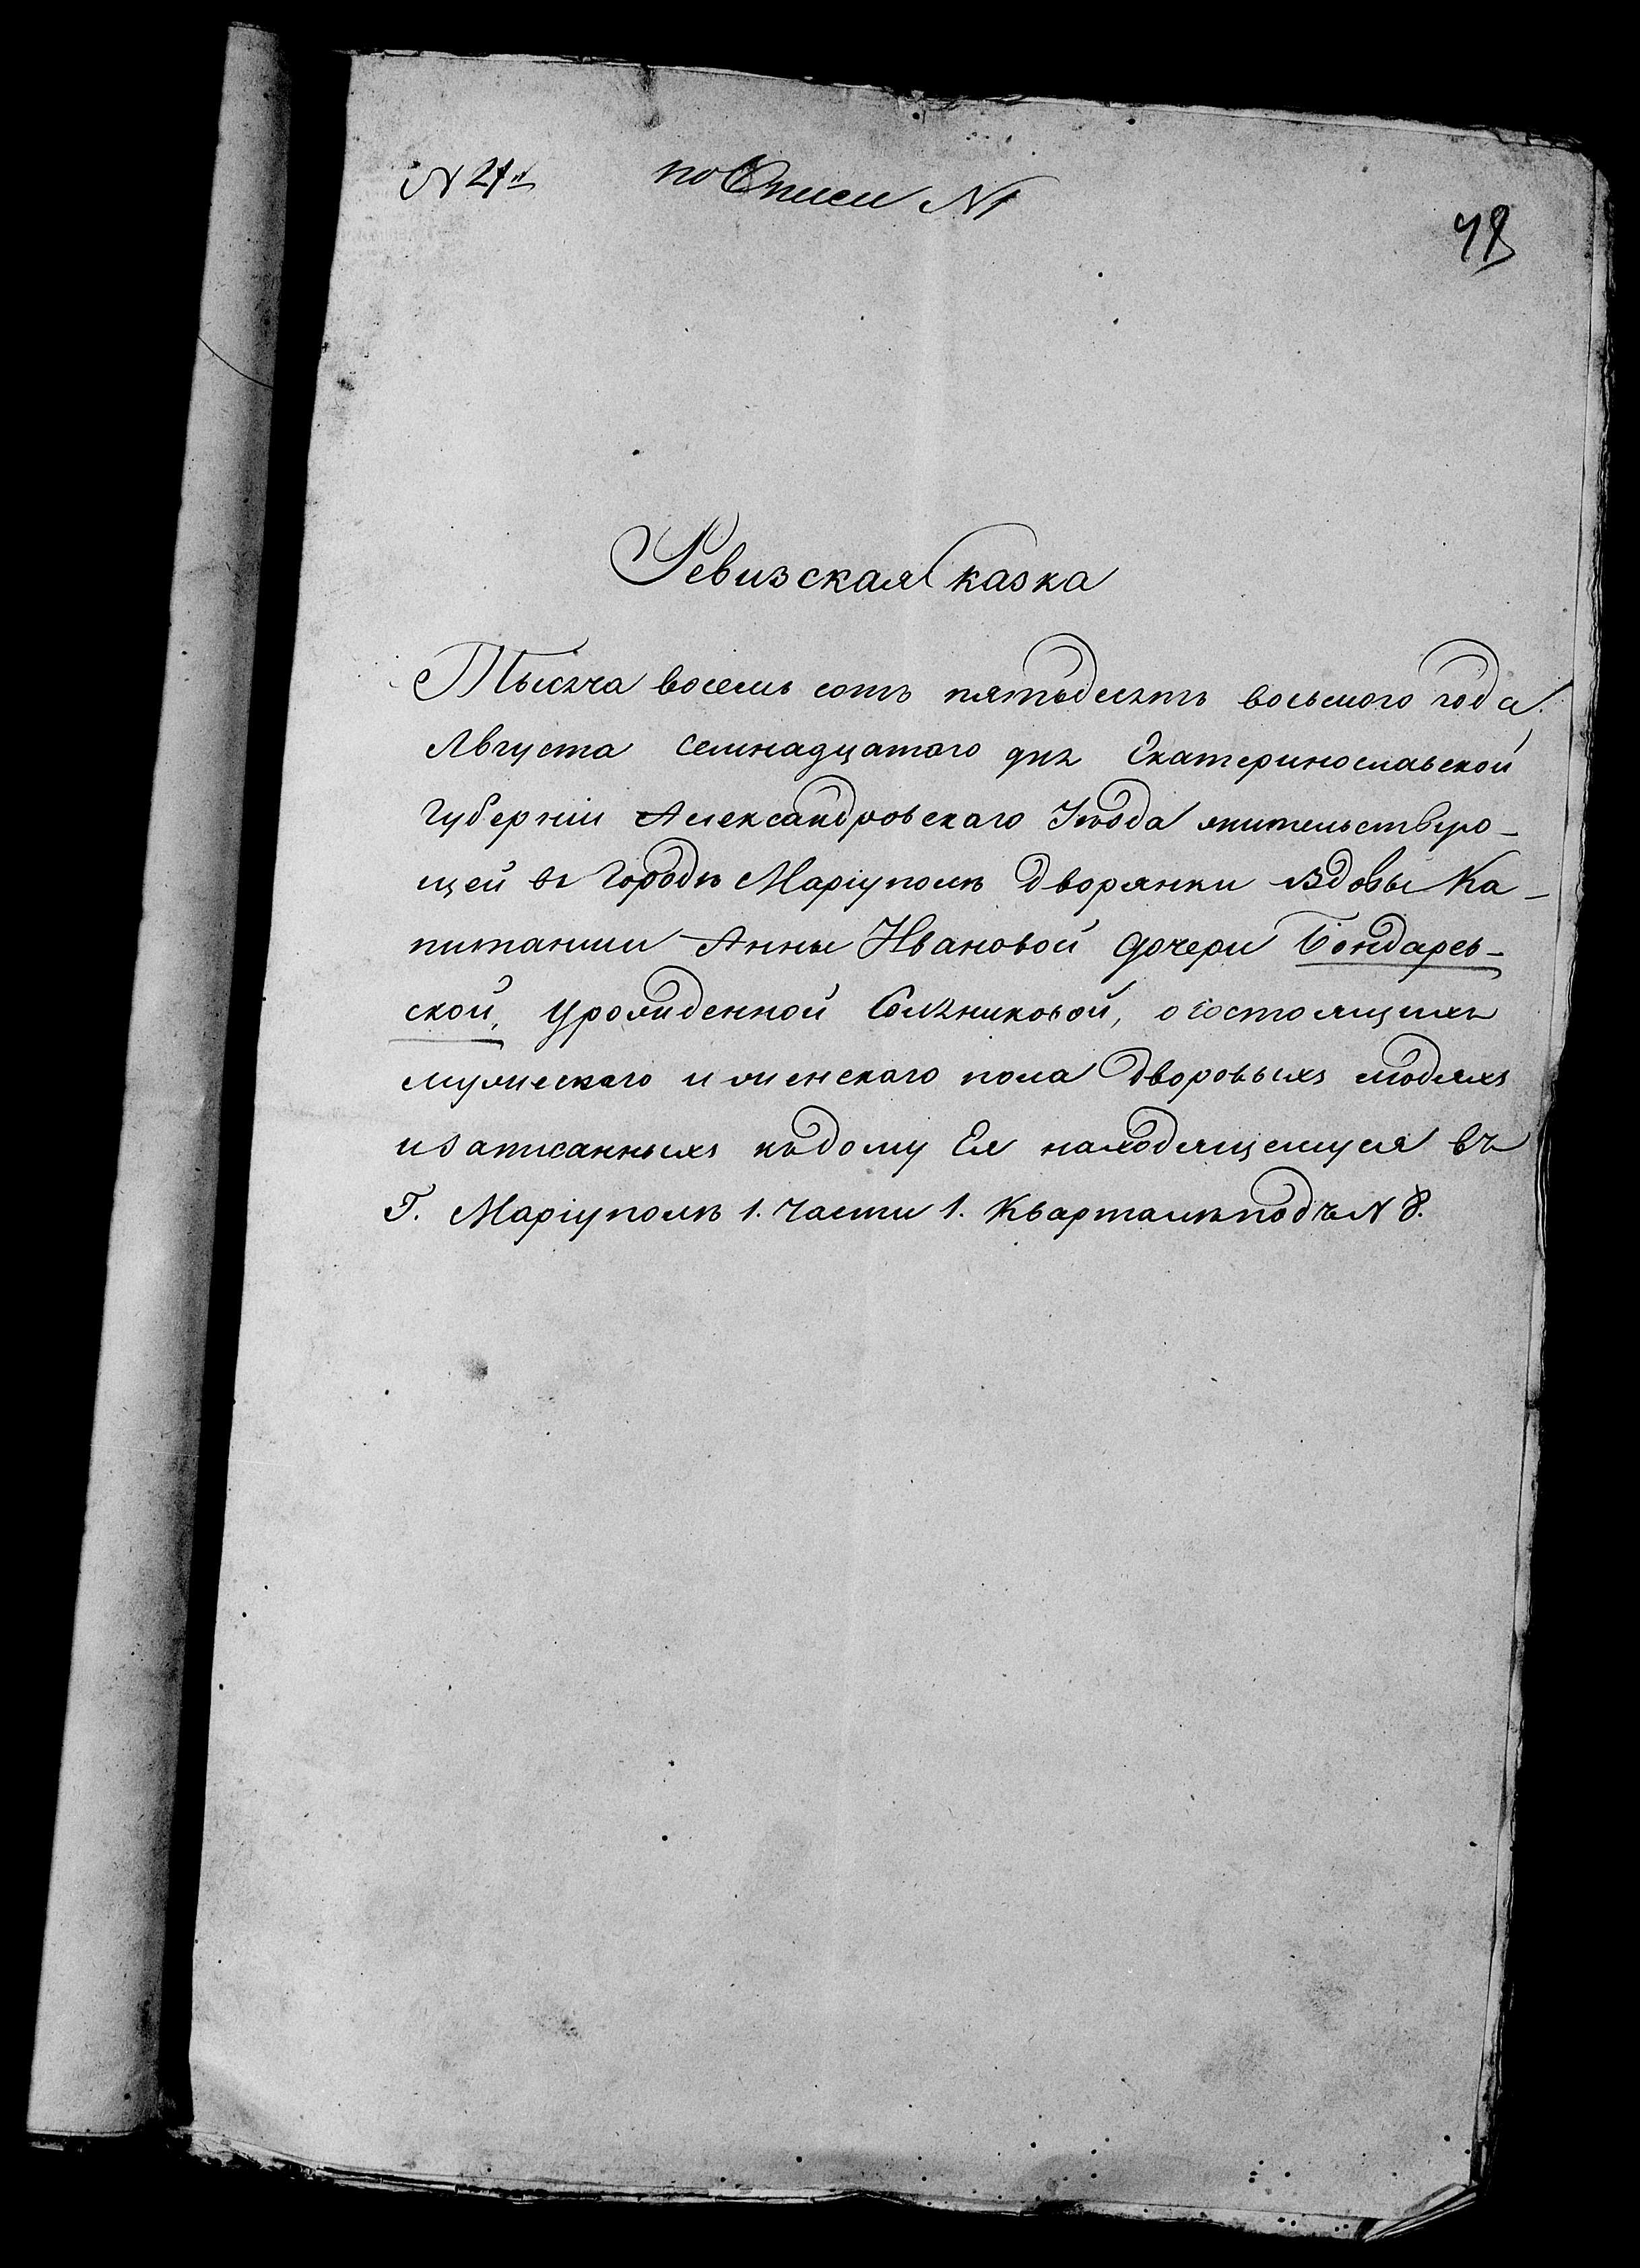 N 24й по Описи N1
48
Ревизская сказка
Тысяча восемь сотъ пятьдесятъ восьмого года
Августа семнадцатаго дня Екатеринославской
Губерніи Александровскаго Уѣзда жительствую-
щей въ Городѣ Маріуполѣ дворянки вдовы Ка-
питанши Анны Ивановой дочери Бондарев-
ской, урожденной о состоящихъ
мужескаго и женскаго пола дворовыхъ людяхъ
и записанныхъ къ дому Ея находящемуся въ
Г. Маріуполѣ 1. Части 1. Кварталѣ подъ N 8.